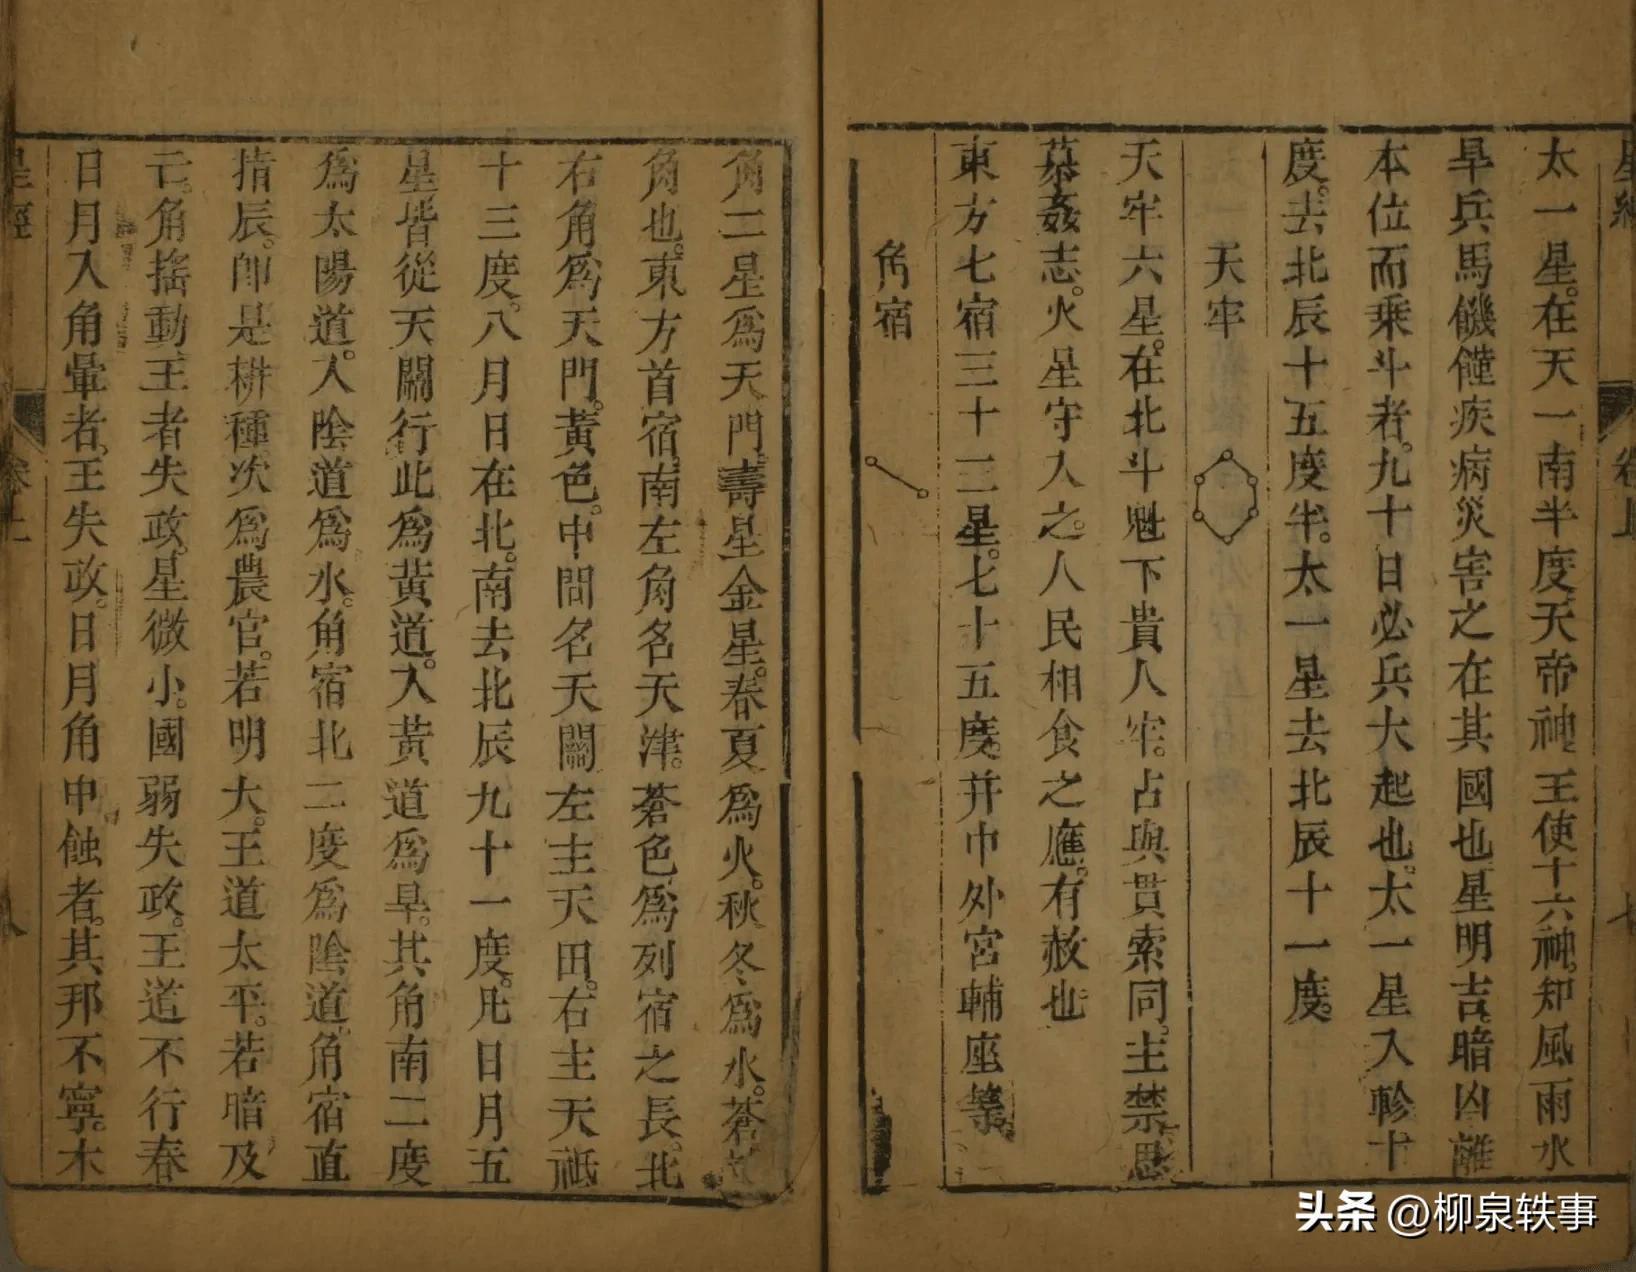 星經 卷上 七
太一星。在天一南半度。天帝神。王使十六神。知風雨水
旱兵馬饑饉疾病災害之在其國也。星明吉。暗凶。離
本位而乘斗者。九十日必兵大起也。太一星入軫十
度。去北辰十五度半。太一星去北辰十一度。
天牢
天牢六星。在北斗魁下貴人牢。占與貫索同。主禁思
慕姦志。火星守入之。人民相食之應。有赦也
東方七宿三十二星。七十五度。并中外宮輔座等
角宿
角二星爲天門。壽星金星。春夏爲火。秋冬爲水。蒼
角也。東方首宿。南左角名天津。蒼色。爲列宿之長。北
右角爲天門。黃色。中間名天關。左主天田。右主天祇
十三度。八月日在北。南去北辰九十一度。凡日月五
星皆從天關行。此爲黃道。入黃道爲旱。其角南二度
爲太陽道。入陰道爲水。角宿北二度爲陰道。角宿直
指辰。即是耕種。次爲農官。若明大。王道太平。若暗及
亡。角搖動王者失政。星微小。國弱失政。王道不行。春
日月入角暈者。王失政。日月角中蝕者。其邦不寧。木
星經 卷上 八
头条 @柳泉轶事